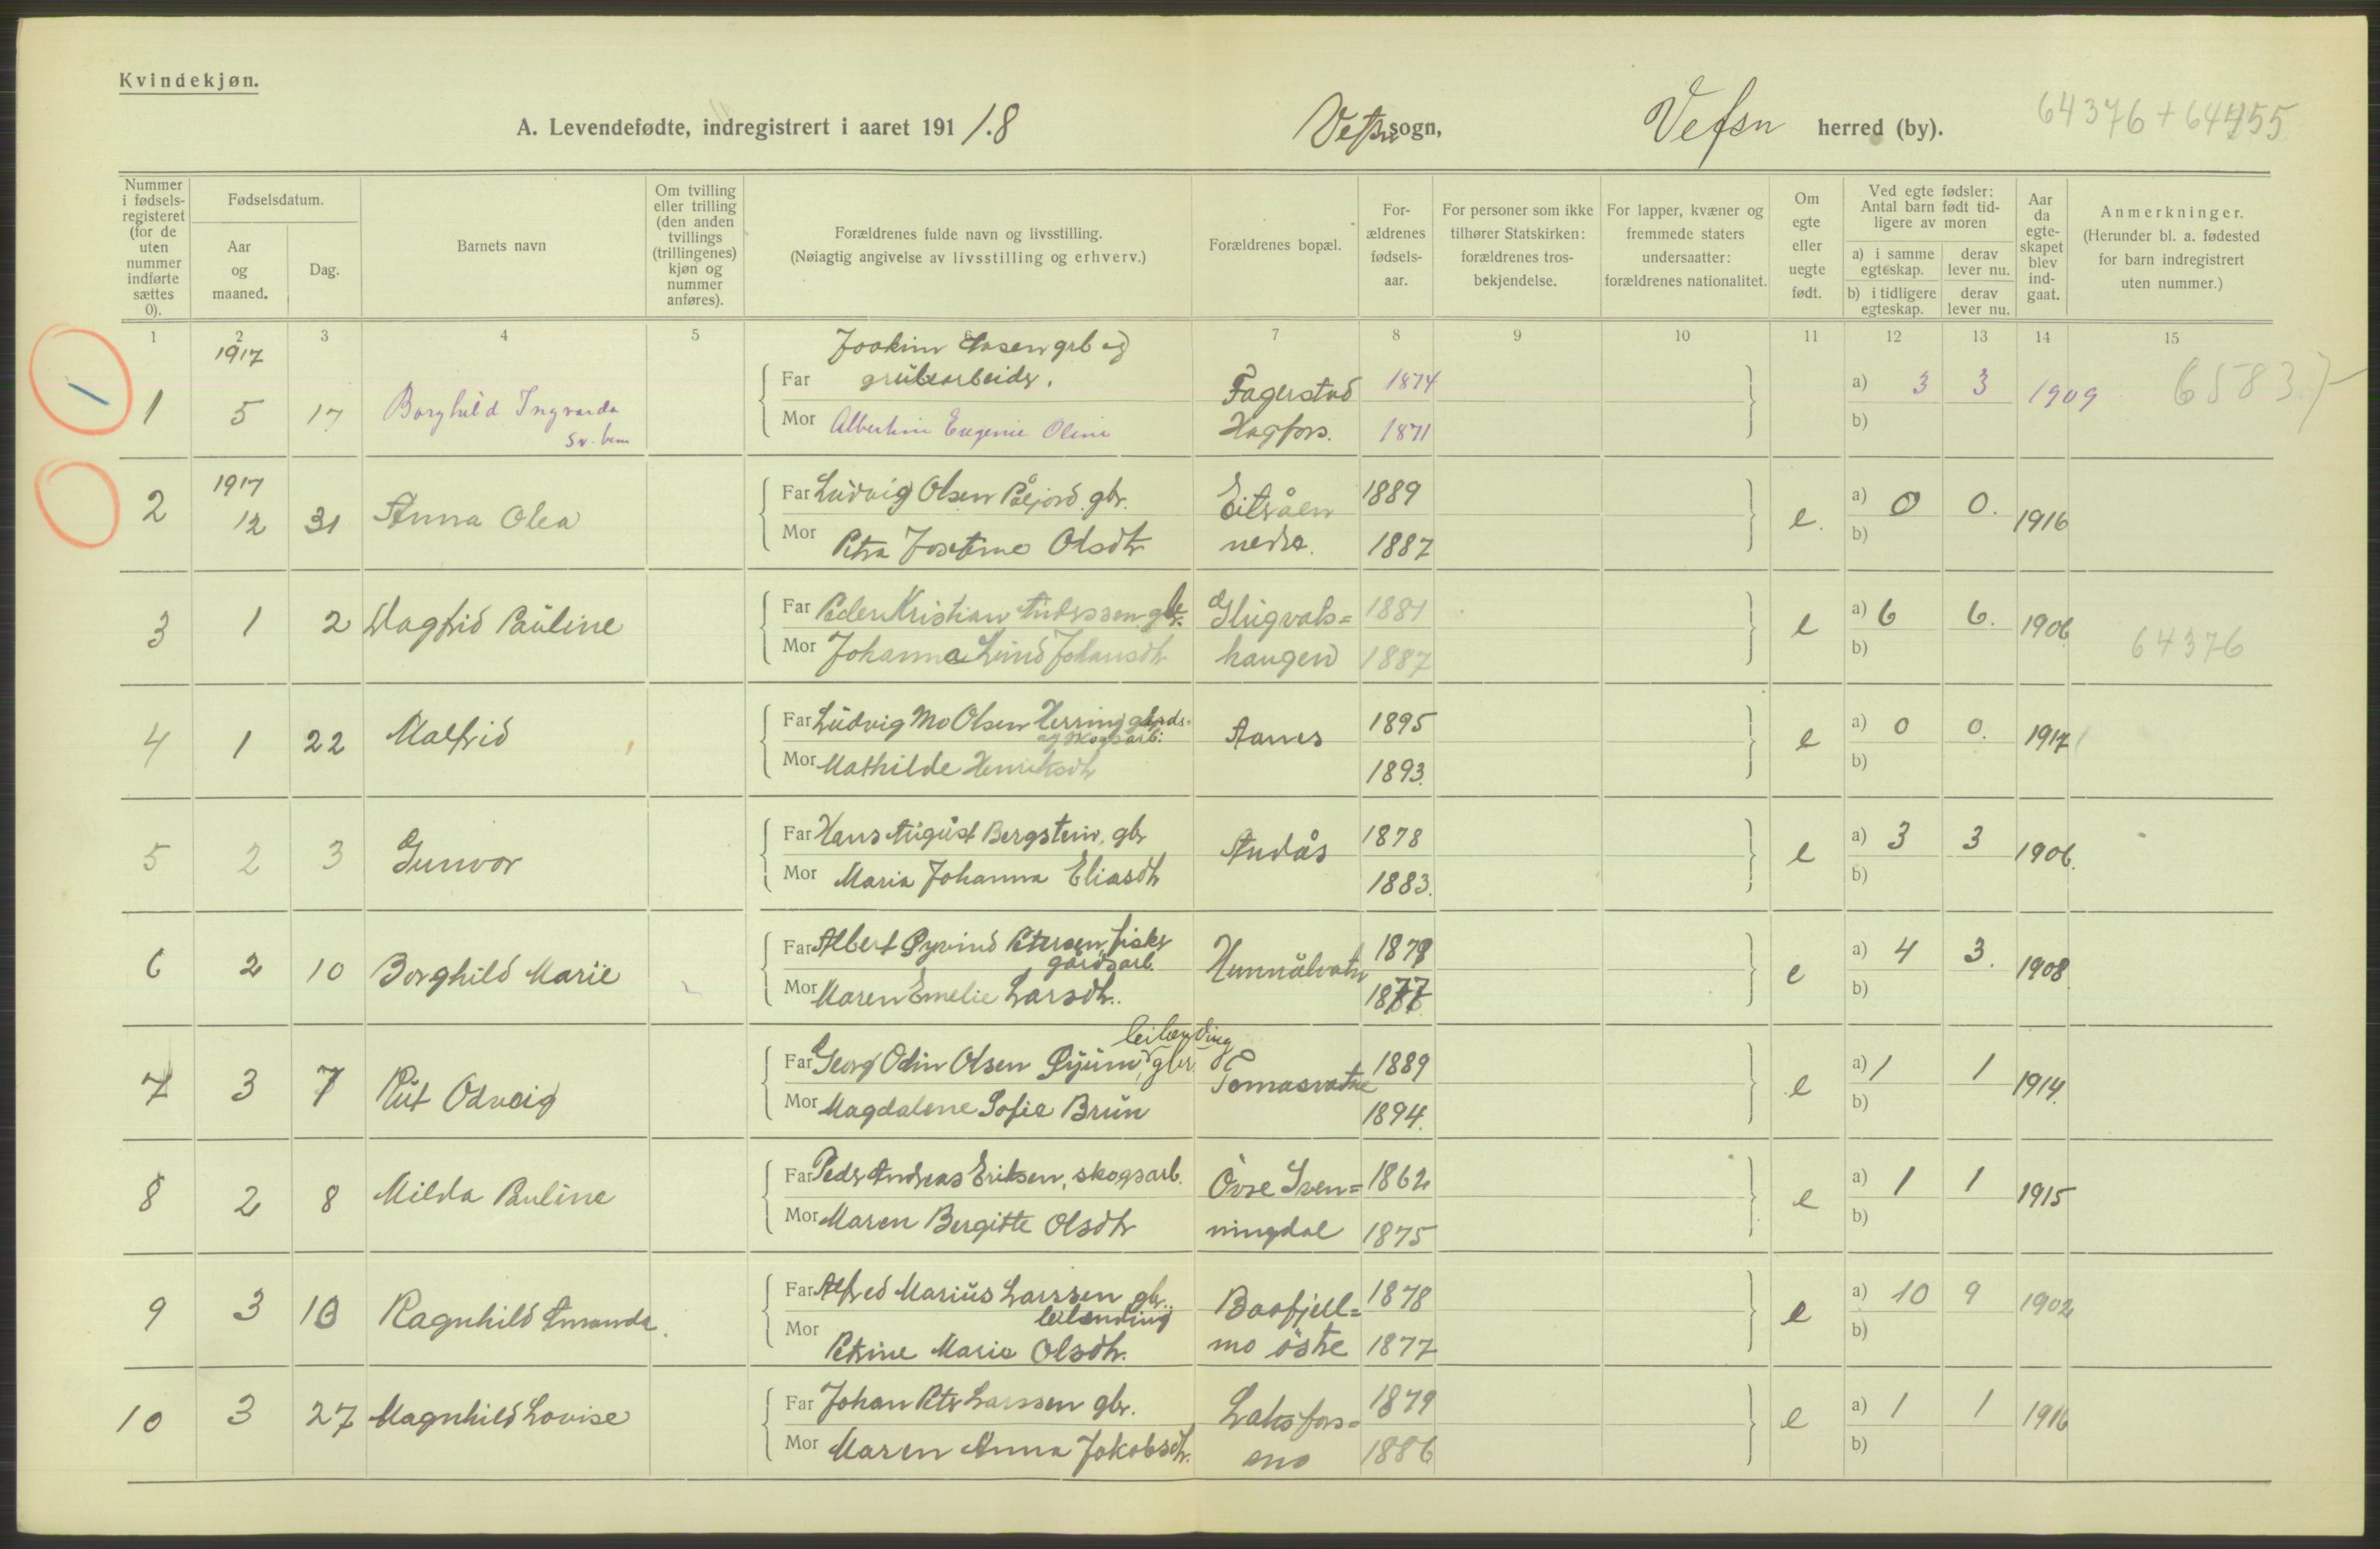 Kvindekjøn.
A. Levendefødte, indregistrert i aaret 191 /.8 Vefsn sogn, Vefsn herred (by). 64376 + 64455
Nummer i fødsels- registeret (for de uten nummer indførte sættes 0).
Fødselsdatum.
Aar og maaned.
Dag.
Barnets navn
Om tvilling eller trilling (den anden tvillings (trillingenes) kjøn og nummer anføres).
Forældrenes fulde navn og livsstilling.
(Nøiagtig angivelse av livsstilling og erhverv.)
Forældrenes bopæl.
For- ældrenes fødsels- aar.
For personer som ikke tilhører Statskirken: forældrenes tros- bekjendelse.
For lapper, kvæner og fremmede staters undersaatter: forældrenes nationalitet.
Om egte eller uegte født.
Ved egte fødsler: Antal barn født tid- ligere av moren
a) i samme egteskap.
derav lever nu.
b) i tidligere egteskap.
derav lever nu.
Aar da egte- skapet blev ind- gaat.
Anmerkninger.
(Herunder bl. a. fødested for barn indregistrert uten nummer.)
1 2 3 4 5 6 7 8 9 10 11 12 13 14 15
1917 Joakim grb og
Far grubearbeidr. Fagerstad 1874 a) 3 3 1909 6583
1 5 17 Borghild Ingvarda
Mor Albertine Eugenie Oline Hagfors. 1871 b)
1917 Far Ludvig Olsen Påljord gbr. Eiteråen 1889 a) 0 0.
2 12 31 Anna Olea e. 1916
Mor Petra Josefine Olsdtr nedre. 1887 b)
Far Peder Kristian Anderssen gbr. Glugvas= 1881 a) 6 6.
3 1 2 Dagfrid Pauline e 1906
Mor Johanna Lund Johansdtr haugen 1887 b) 64376
Far Ludvig Mo Olsen Herring gårds- 1895 a) 0 0.
og skogsarb:
4 1 22 Malfrid Aanes e 1917
Mor Mathilde Henriksdtr 1893. b)
Far Hans August Bergstein, gbr 1878 a) 3 3
5 2 3 Gunvor Andås e 1906.
Mor Maria Johanna Eliasdtr 1883. b)
Far Albert Øyvind Petersen, fisker 1879 a) 4 3.
gårdsarb.
6 2 10 Borghild Marie Hunnålvatn e 1908
Mor Maren Emelie Larsdtr. 1877 b)
leilending
Far Georg Odin Olsen Øjum, gbr 1889 a) 1 1
7 3 7 Rut Odveig Tomasvatne e 1914.
Mor Magdalene Sofie Brun 1894. b)
Far Peder Andreas Eriksen, skogsarb. Övre Sven= 1862 a) 1 1
8 2 8 Milda Pauline e 1915
Mor Maren Bergitte Olsdtr ningdal 1875 b)
Far Alfred Marius Larssen gbr. Baafjell= 1878 a) 10 9 1902
leilending
9 3 13 Ragnhild Amanda. e
Mor Petrine Marie Olsdtr. mo östre 1877 b)
Far Johan Peter Larssen gbr. Laksfors= 1879 a) 1 1
10 3 27 Magnhild Lovise e 1916
Mor Maren Anna Jakobsdtr. mo 1886 b)